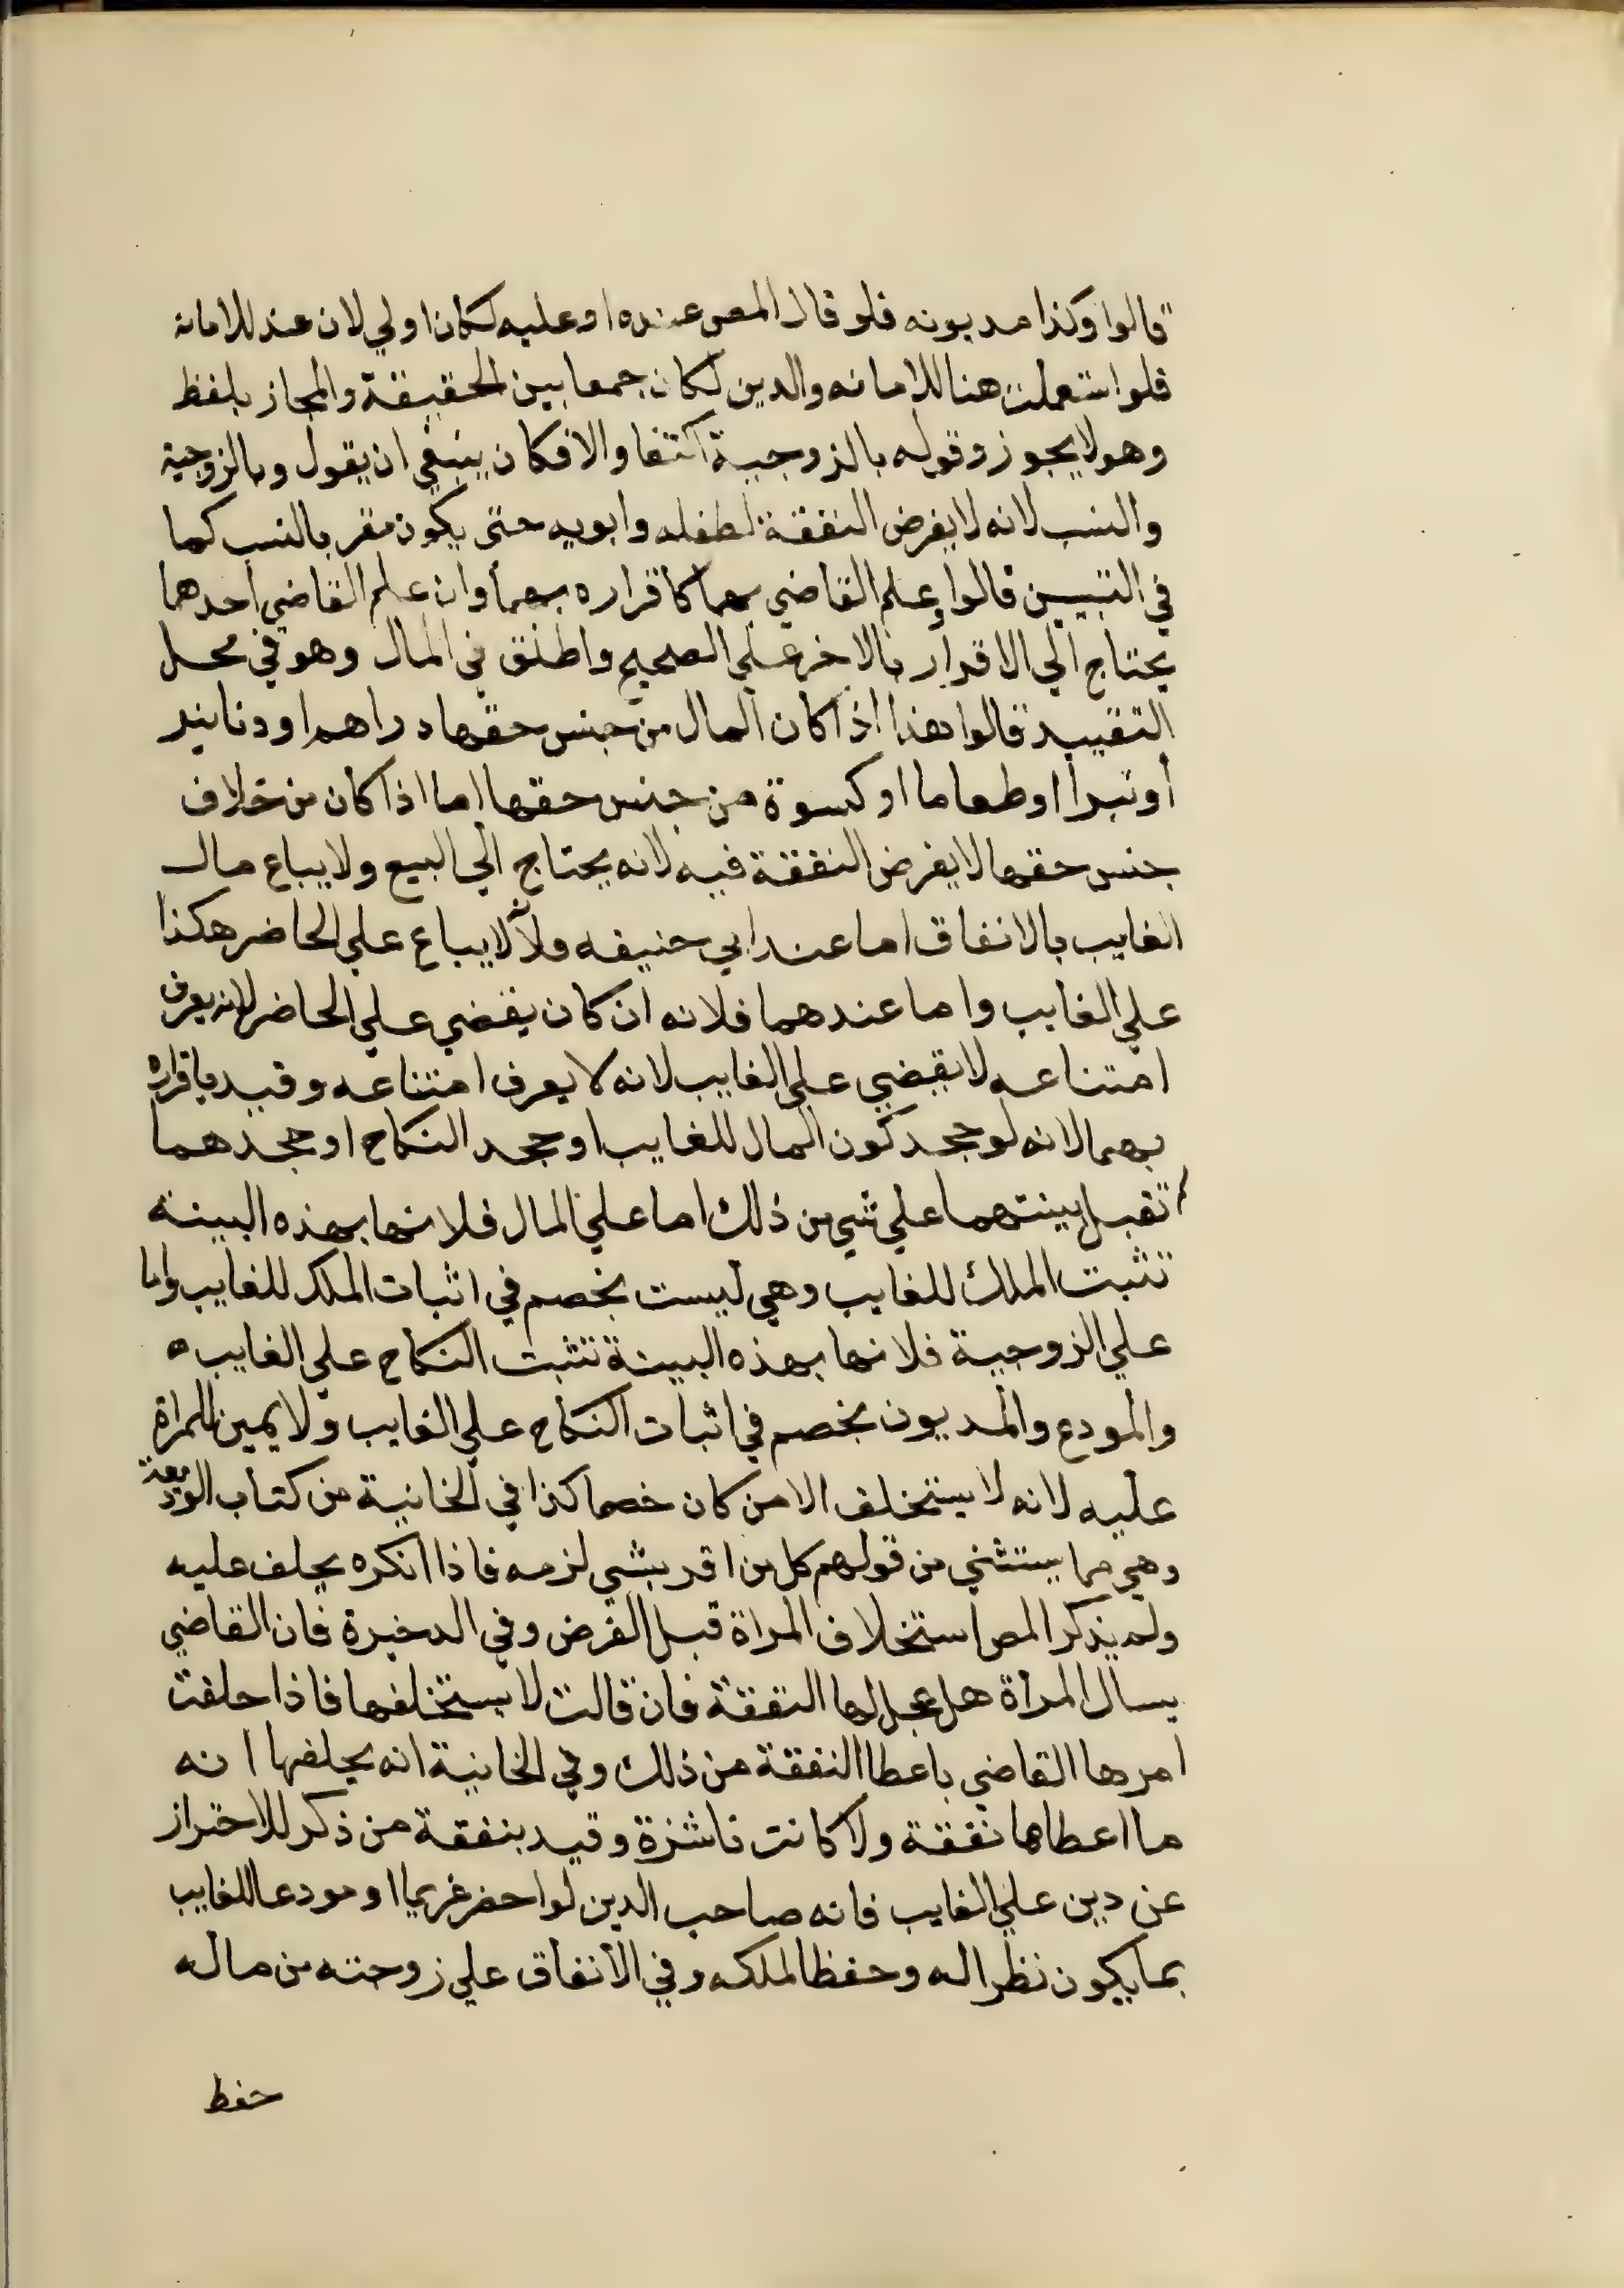 قالوا وكذا مديونه فلو قال المص عنده او عليه لكان اولي لان عند للامانه
فلو استعملت هنا للامانه والدين لكان جمعا بين الحقيقة والمجاز بلفظ
وهو لا يجوز وقوله بالزوجية اكتفا والا فكان ينبغي ان يقول وبالزوجية
والنسب لانه لا يفرض النفقة لطفله وابويه حتى يكون مقر بالنسب كما
في التبيين قالوا وعلم القاضي بهما كاقراره بهما وان علم القاضي احدهما
يحتاج الي الاقرار بالاخر علي الصحيح واطلق في المال وهو في محل
التقييد قالوا هذا اذا كان المال من جنس حقها دراهم او دنانير
او تبرا او طعاما او كسوة من جنس حقها اما اذا كان من خلاف
جنس حقها لا يفرض النفقة فيه لانه يحتاج الي البيع ولا يباع مال
الغايب بالاتفاق اما عند ابي حنيفه فلانه لا يباع علي الحاضر هكذا
علي الغايب واما عندهما فلانه ان كان يقضي علي الحاضر لانه يعرف
امتناعه لا يقضي علي الغايب لانه لا يعرف امتناعه وقيد باقراره
بهما لانه لو جحد كون المال للغايب او جحد النكاح او جحدهما
لم تقبل بينتهما علي شي من ذلك اما علي المال فلانها بهذه البينة
تثبت الملك للغايب وهي ليست بخصم في اثبات الملك للغايب واما
علي الزوجية فلانها بهذه البينة تثبت النكاح علي الغايب ه
والمودع والمديون بخصم في اثبات النكاح علي الغايب ولا يمين للمراة
عليه لانه لا يستحلف الا من كان خصما كذا في الخانية من كتاب الوديعة
وهي مما يستثني من قولهم كل من اقر بشي لزمه فاذا انكره يحلف عليه
ولم يذكر المص استحلاف المراة قبل الفرض وفي الدخيرة فان القاضي
يسال المراة هل عجل لها النفقة فان قالت لا يستحلفها فاذا حلفت
امرها القاضي باعطا النفقة من ذلك وفي الخانية انه يحلفها انه
ما اعطاها نفقة ولا كانت ناشزة وقيد بنفقة من ذكر للاحتراز
عن دين علي الغايب فانه صاحب الدين لو احضر غريما او مودعا للغايب
بما يكون نظرا له وحفظا لملكه وفي الانفاق علي زوجته من ماله
حفظ